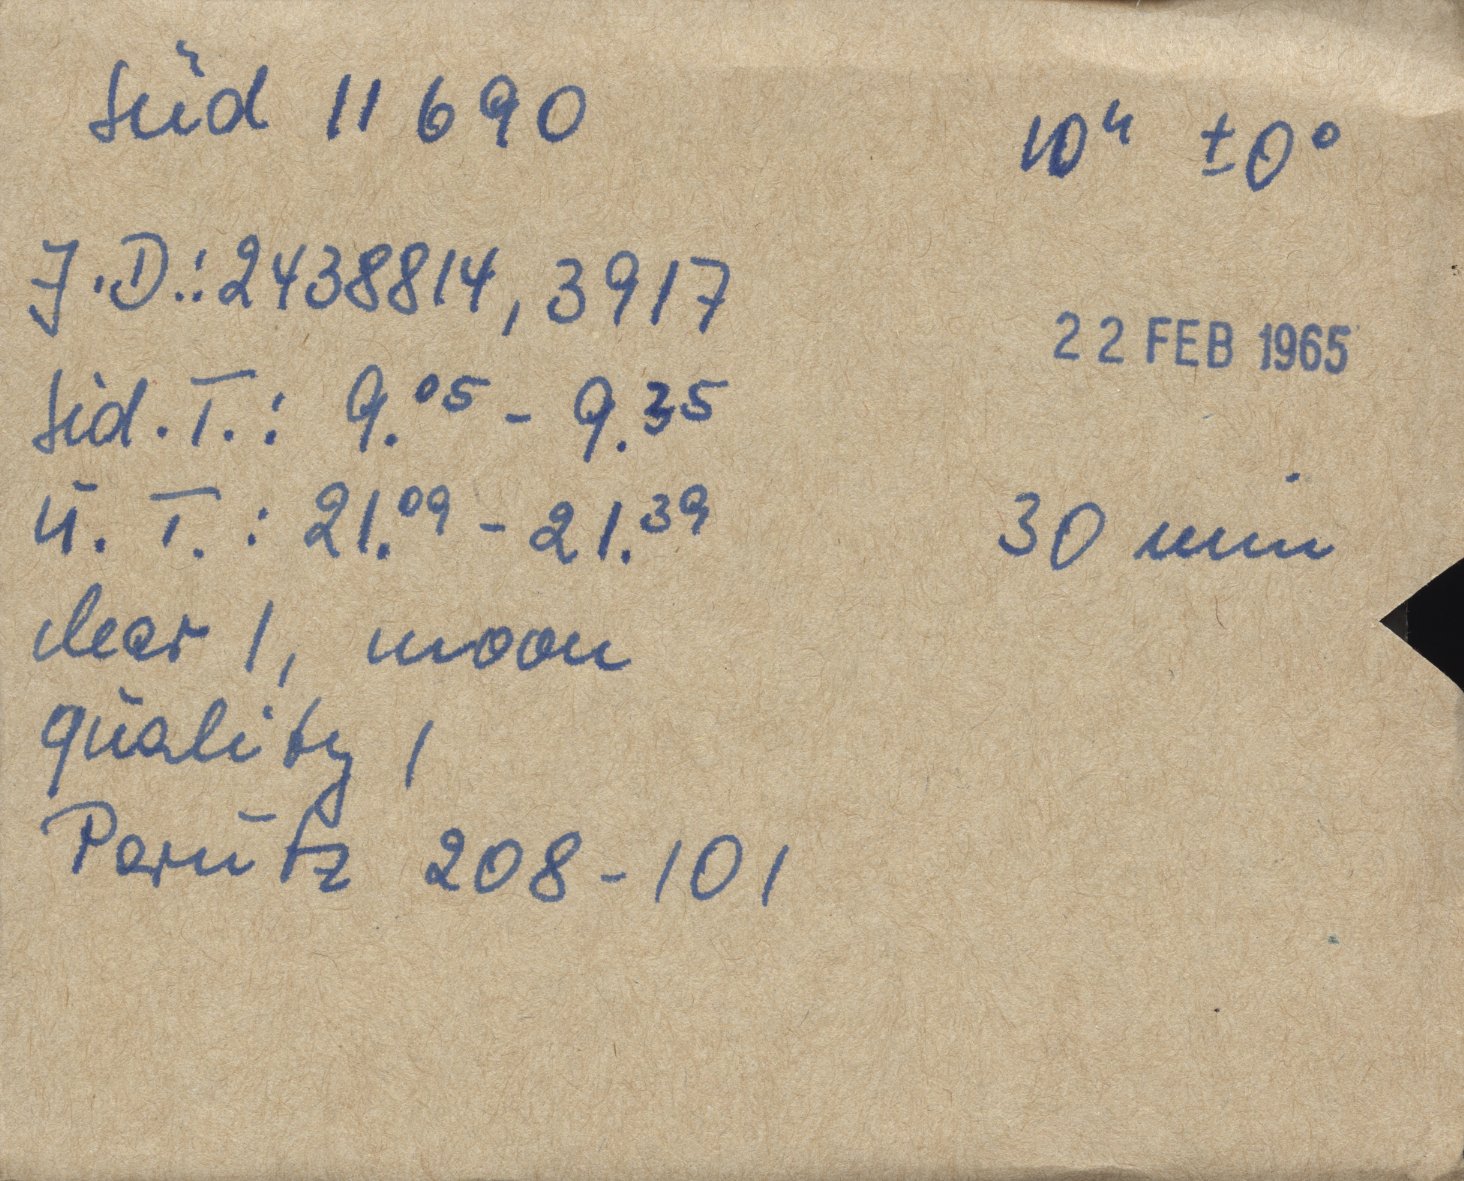 Süd 11690 10ʰ ±0°
J.D.: 2438814,3917
22 FEB 1965
Sid. T.: 9.⁰⁵ - 9.³⁵
U. T.: 21.⁰⁹ - 21.³⁹ 30 min
clear 1, moon
quality 1
Perutz 208-101